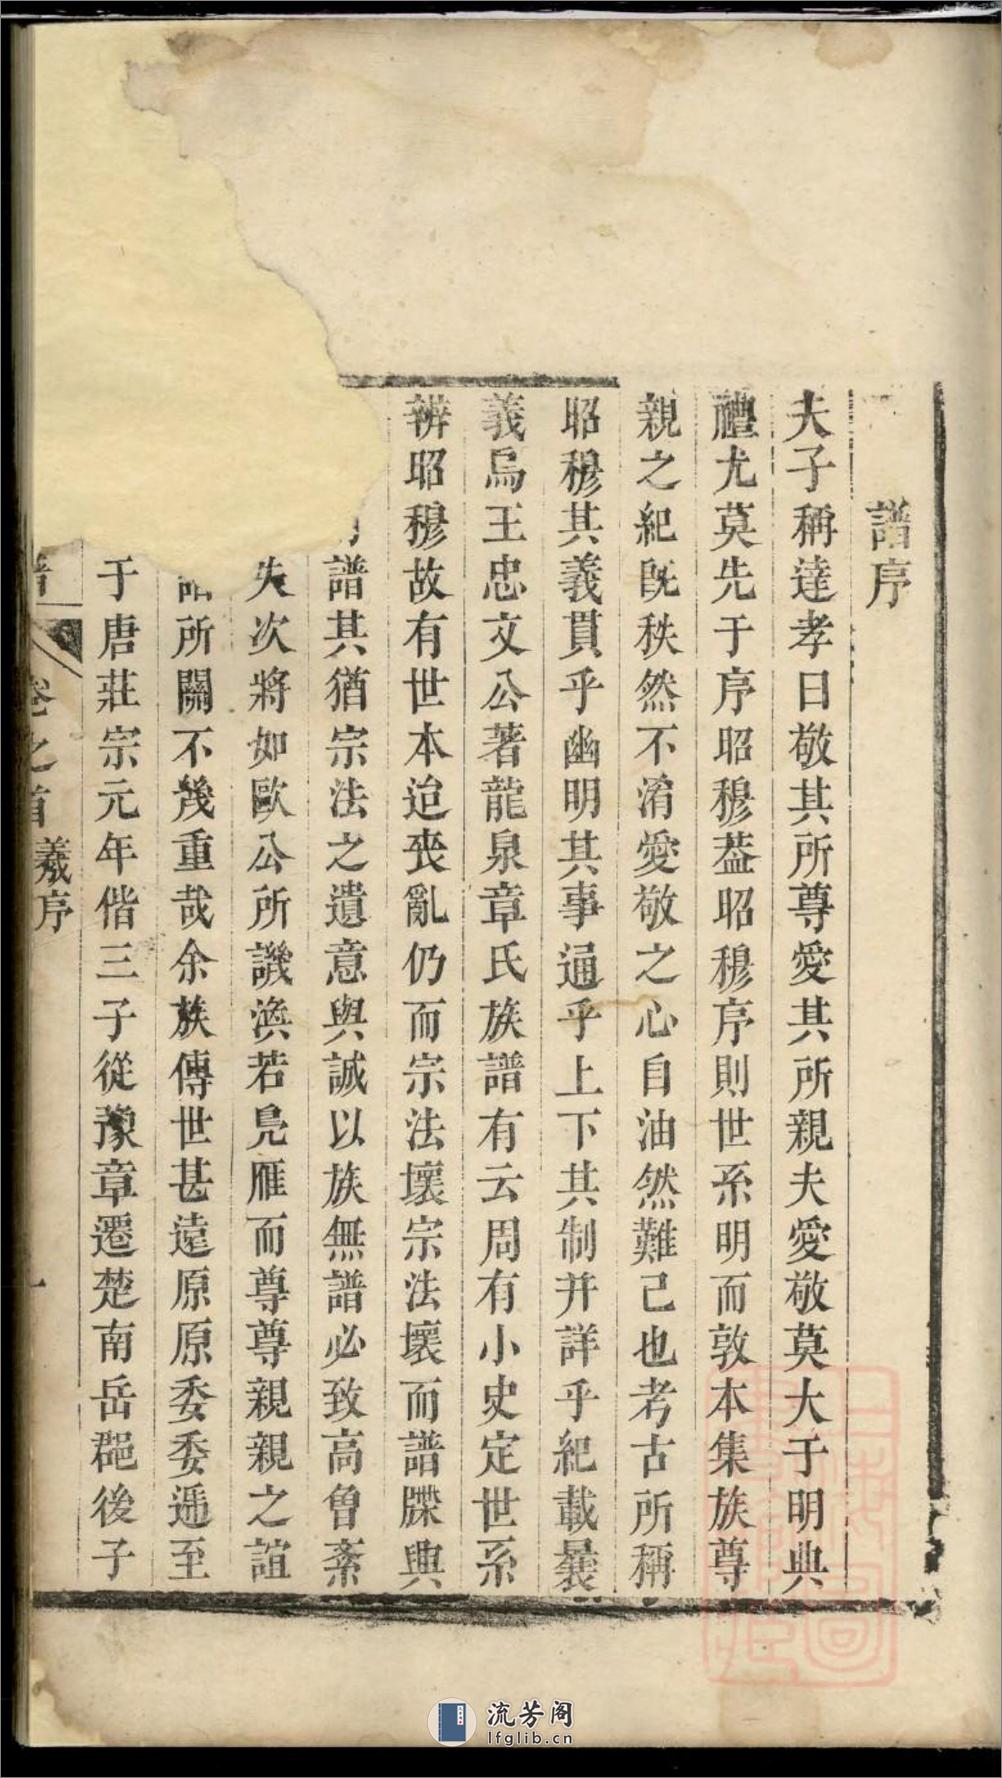 譜序
夫子稱達孝曰敬其所尊愛其所親夫愛敬莫大于明典
禮尤莫先于序昭穆葢昭穆序則世系明而敦本集族尊
親之紀旣秩然不淆愛敬之心自油然難己也考古所稱
昭穆其義貫乎幽明其事通乎上下其制并詳乎紀載曩
義烏王忠文公著龍泉章氏族譜有云周有小史定世系
辨昭穆故有世本迨喪亂仍而宗法壞宗法壞而譜牒興
譜其猶宗法之遺意與誠以族無譜必致高曾紊
失次將如歐公所譏渙若鳧雁而尊尊親親之誼
所關不幾重哉余族傳世甚遠原原委委遞至
于唐莊宗元年偕三子從豫章遷楚南岳郡後子
譜
卷之首
羲序
一
流芳阁
lfglib.cn